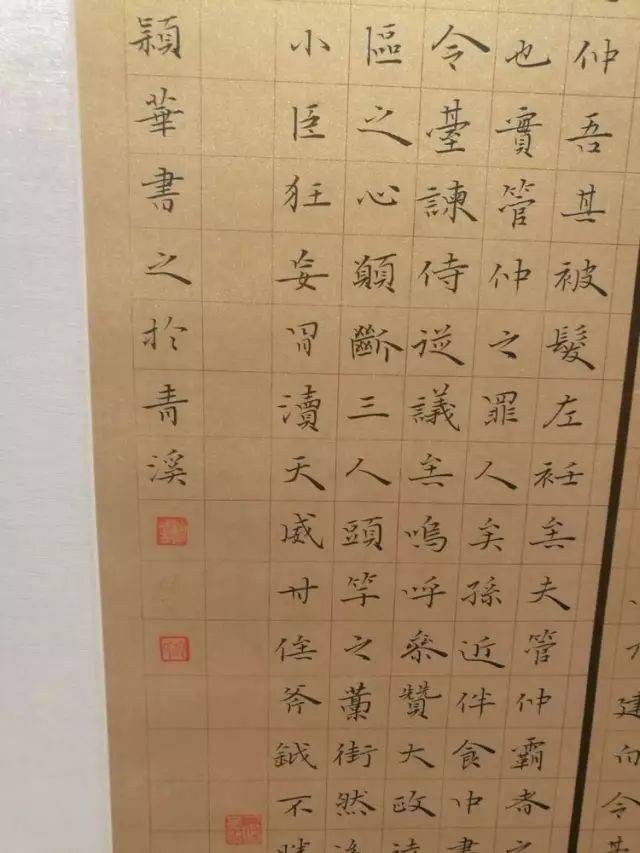 建向令
仲吾其被髮左衽矣夫管仲霸者之
也實管仲之罪人矣孫近伴食中書
令臺諫侍從議矣嗚呼參贊大政
區之心願斷三人頭竿之藁街然後
小臣狂妄冒瀆天威甘俟斧鉞不勝
穎華書之於青溪